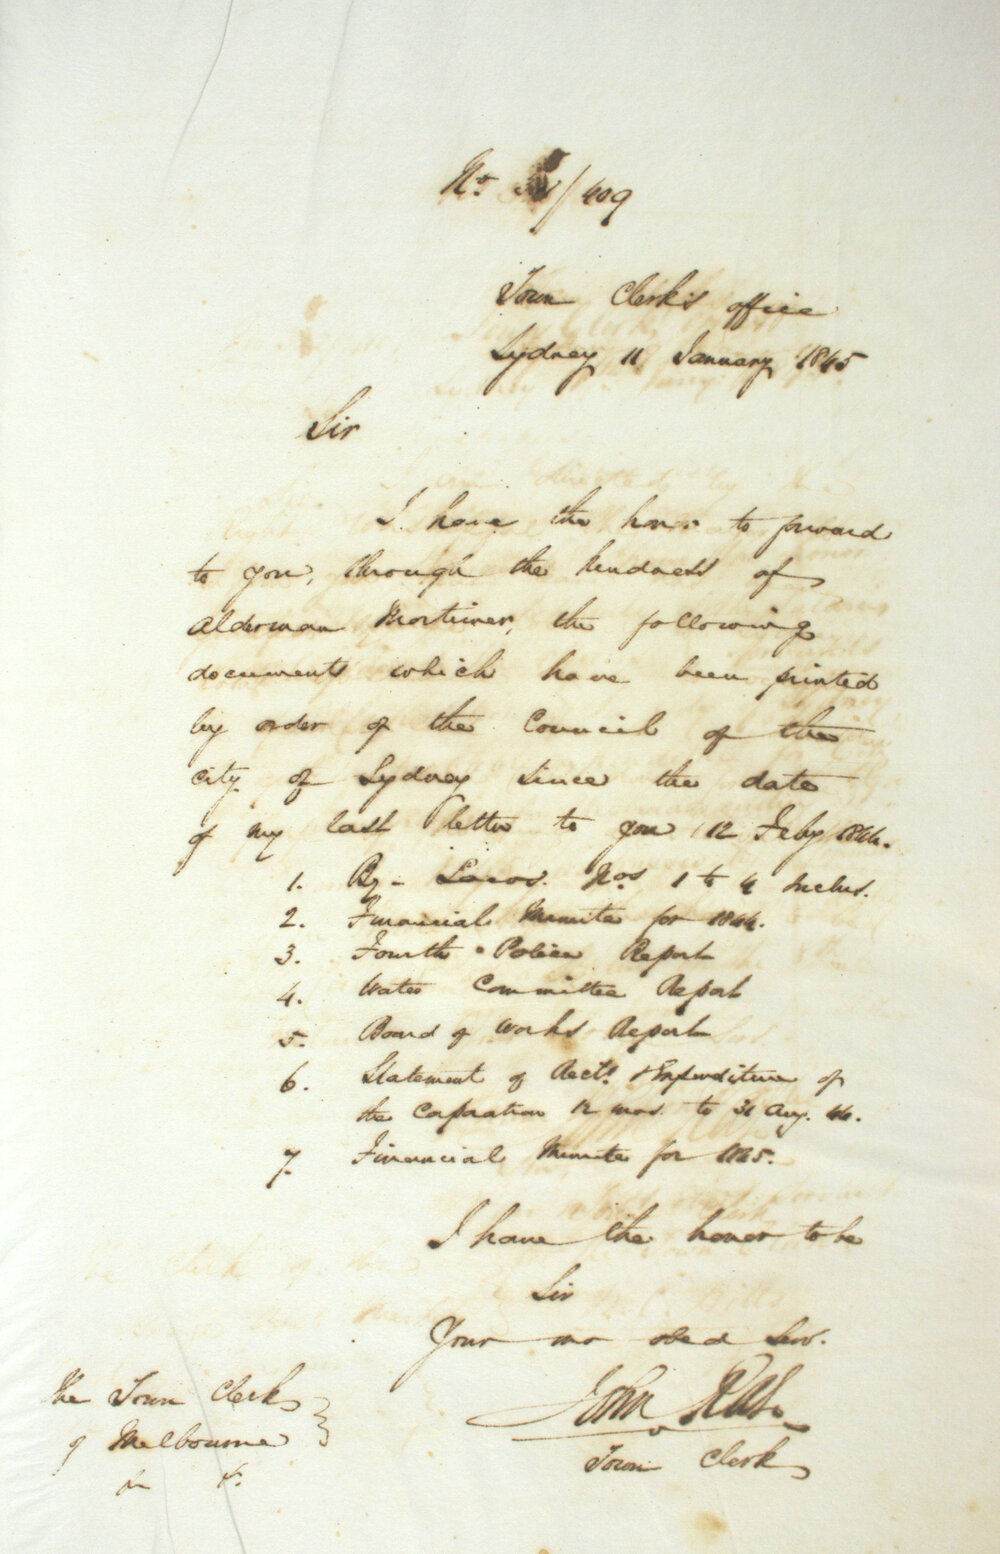 No /409
Town Clerk's office
Sydney 11 January 1845
Sir
I have the honor to forward
to you, through the kindness of
Alderman Mortimer, the following
documents which have been printed
by order of the Council of the
city of Sydney since the date
of my last letter to you 12 Feby 1844.
1. By-Laws. Nos 1 to 4 Inclus.
2. Financial Minute for 1844.
3. Fourth Police Report
4. Water Committee Report
5. Board of Works Report
6. Statement of Rects & Expenditure of
the Corporation 12 mos. to 31 Aug. 44.
7. Financial Minute for 1845.
I have the honor to be
Sir
Your mo obed Serv.
John
Town Clerk
The Town Clerk
of Melbourne